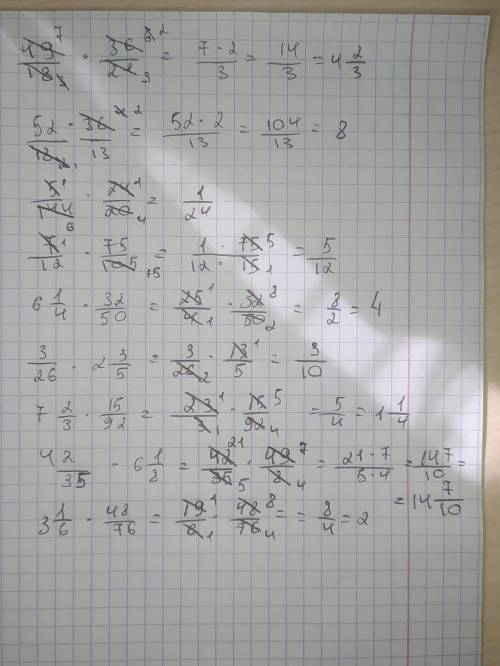 49/18 · 36/21 = 7·2/3 = 14/3 = 4 2/3
52/18 · 36/13 = 52·2/13 = 104/13 = 8
5/144 · 24/20 = 1/24
7/12 · 75/105 = 1/12 · 75/15 = 5/12
6 1/4 · 32/50 = 25/4 · 32/50 = 8/2 = 4
3/26 · 2 3/5 = 3/26 · 13/5 = 3/10
7 2/3 · 15/92 = 23/3 · 15/92 = 5/4 = 1 1/4
4 2/35 · 6 1/8 = 42/35 · 49/8 = 21·7/5·4 = 147/10 =
= 14 7/10
3 1/6 · 48/76 = 19/6 · 48/76 = = 8/4 = 2